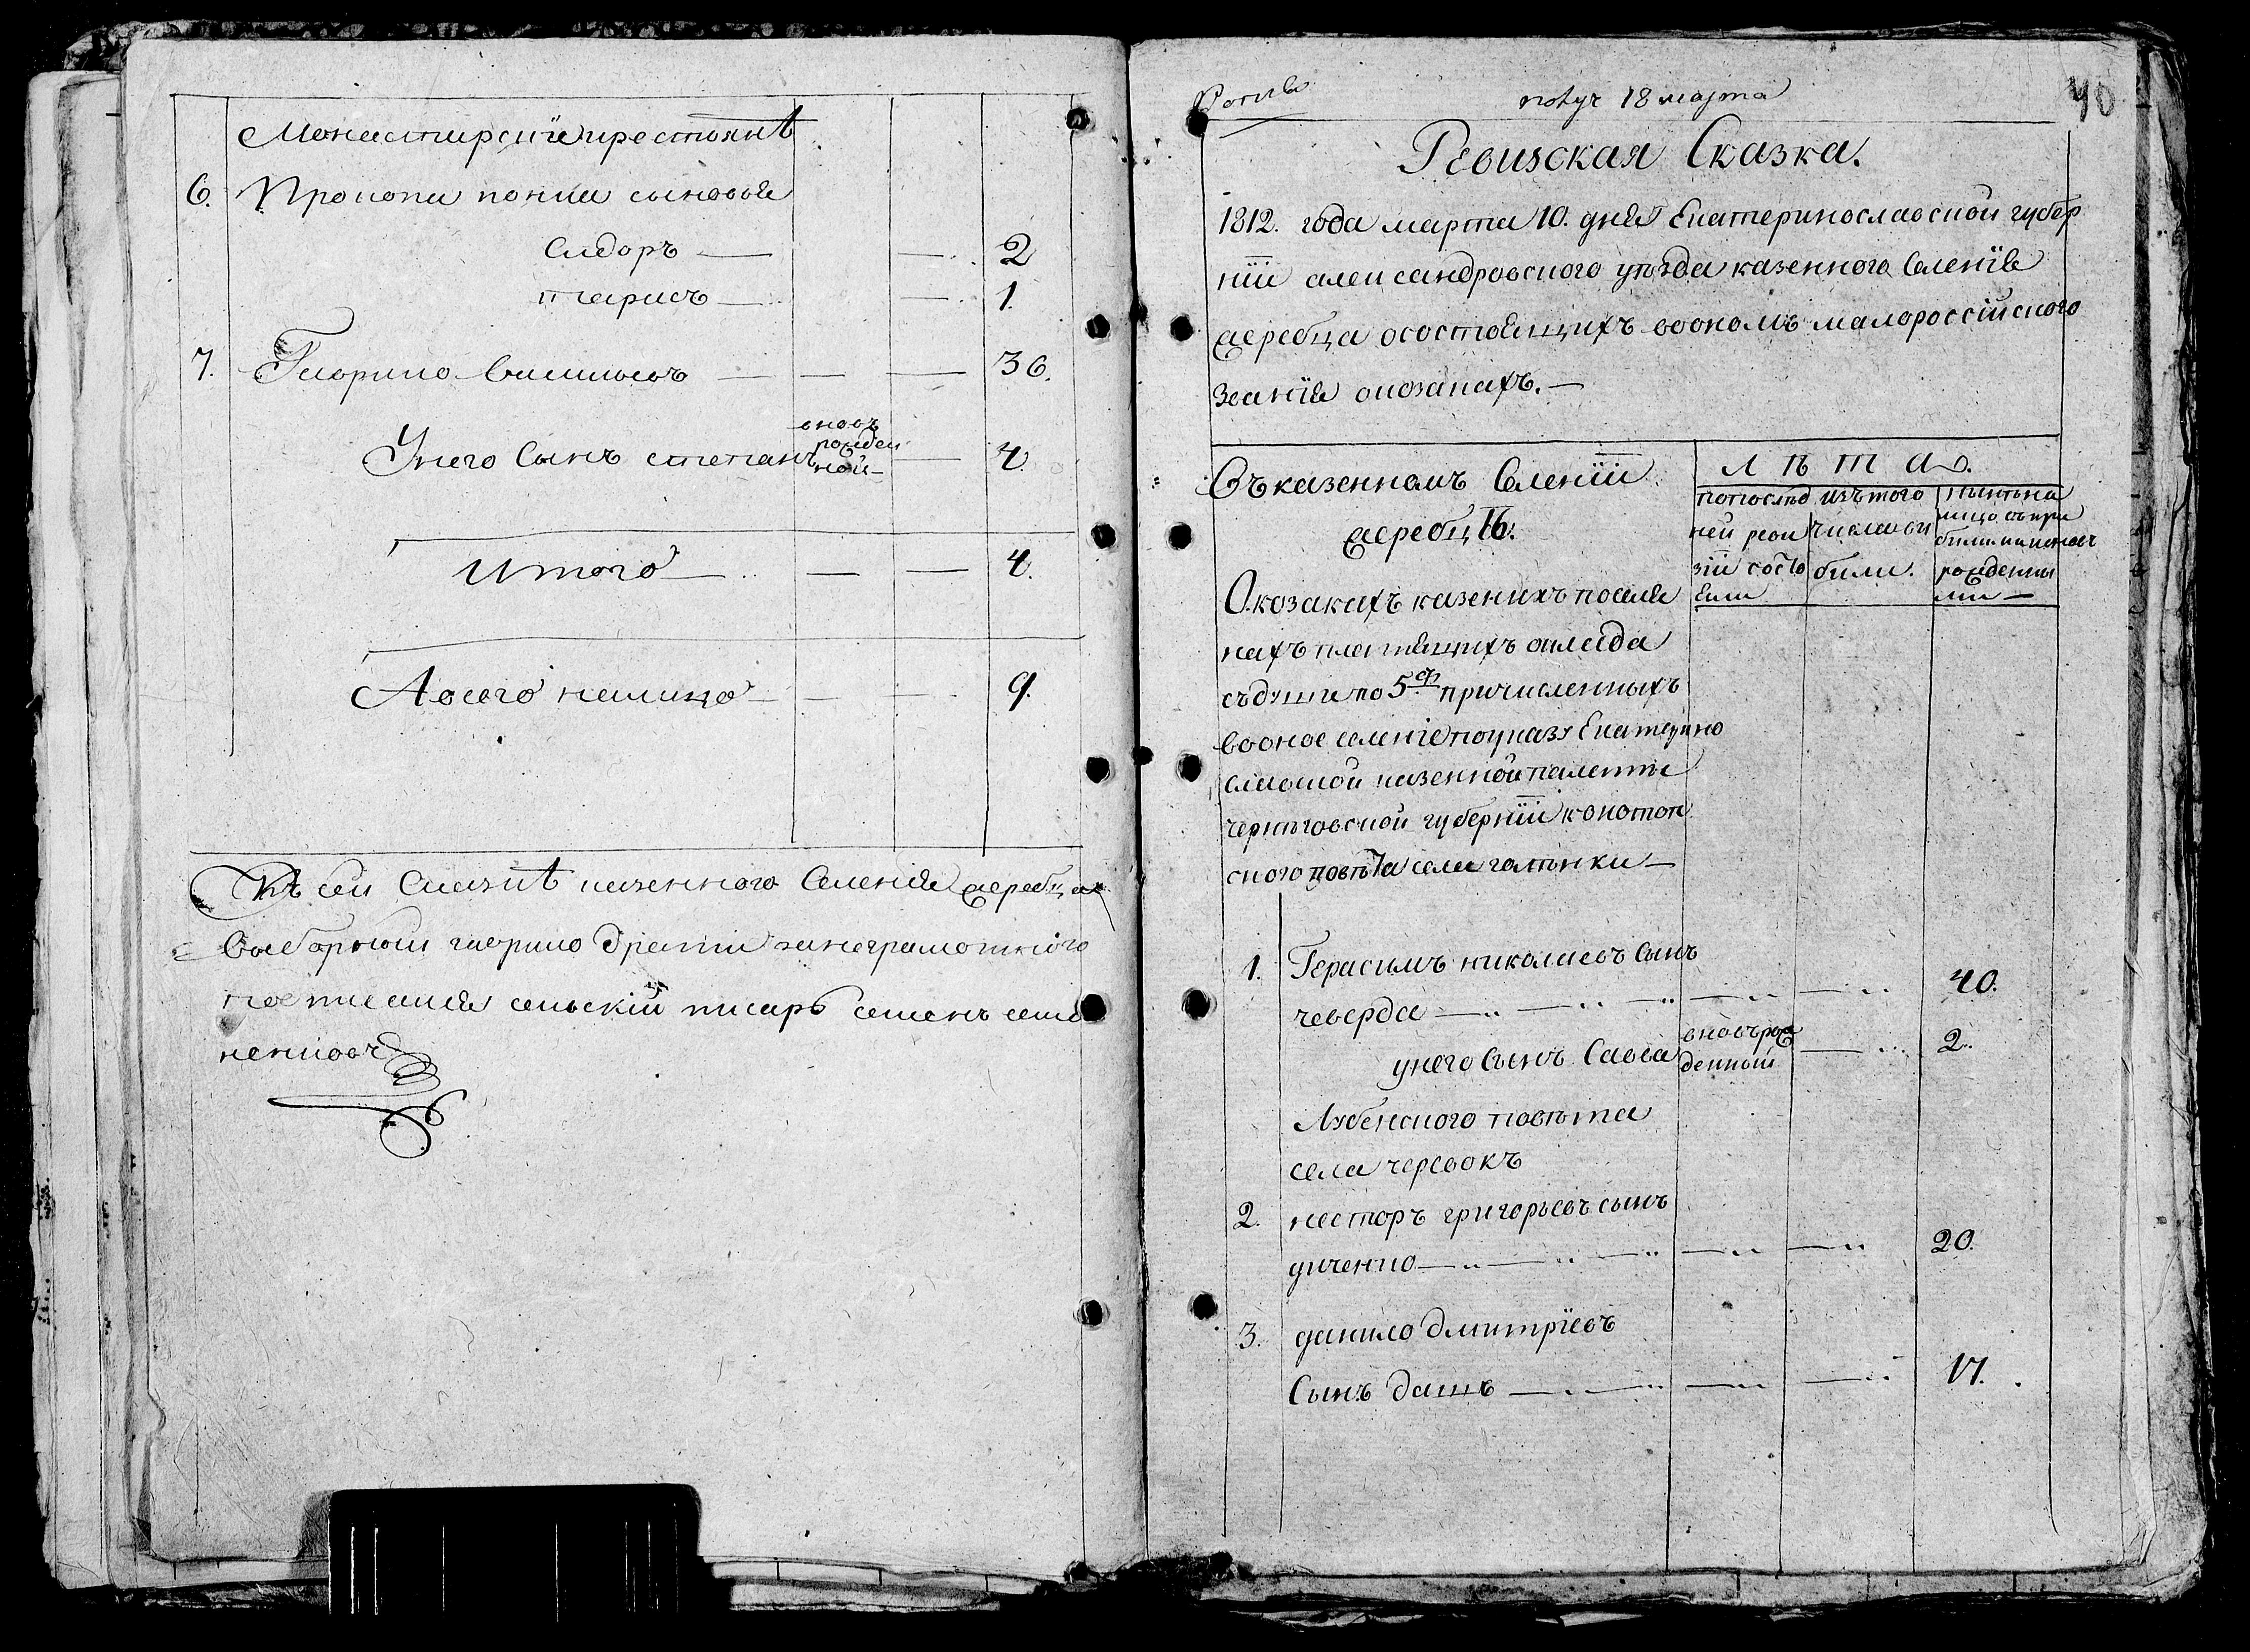 Монастирскіе крестьянѣ
6. Прокопи понка сыновья
Сидоръ — — 2
тарасъ — — 1.
7. Гаврило — — — 36.
Унего Сынъ степанъ вновь рожден ной — — 4.
Итого — — — 4.
А всего налицо — — — 9.
Къ сей Сказкѣ казенного Селенія жеребца
Выборный гаврило занеграмотного
сельскій писарь семенъ семе
ненковъ
получ 18 марта
40
Ревизская Сказка.
1812. года марта 10. дня Екатеринославской губер
ніи александровского уѣзда казенного Селенія
жеребца осостоящихъ вономъ малороссійского
Званія оказакахъ. —
Въказенномъ Селеніи
жеребцѣ.
Л ѣ т а.
попослѣд ней реви зіи состо яли
изътого числа вы были.
нынѣ на лицо съпри былими и вновь рожденны ми —
Оказакахъ казенихъ поселя
нахъ платящихъ оклада
съдуши по 5 причисленныхъ
воное селеніе поуказу Екатерино
славской казенной палаты
черниговской губерніи конотоп
ского повѣта села гатьнки —
1. Герасимъ николаевъ Сынъ
чеверда — — — — — 40.
унего Сынъ Савва вновьрож денный — 2.
Лубенского повѣта
села черевокъ
2. несторъ григорьевъ сынъ
диченко — — — — — 20.
3. данило дмитріевъ
Сынъ дашъ — — — — 17.